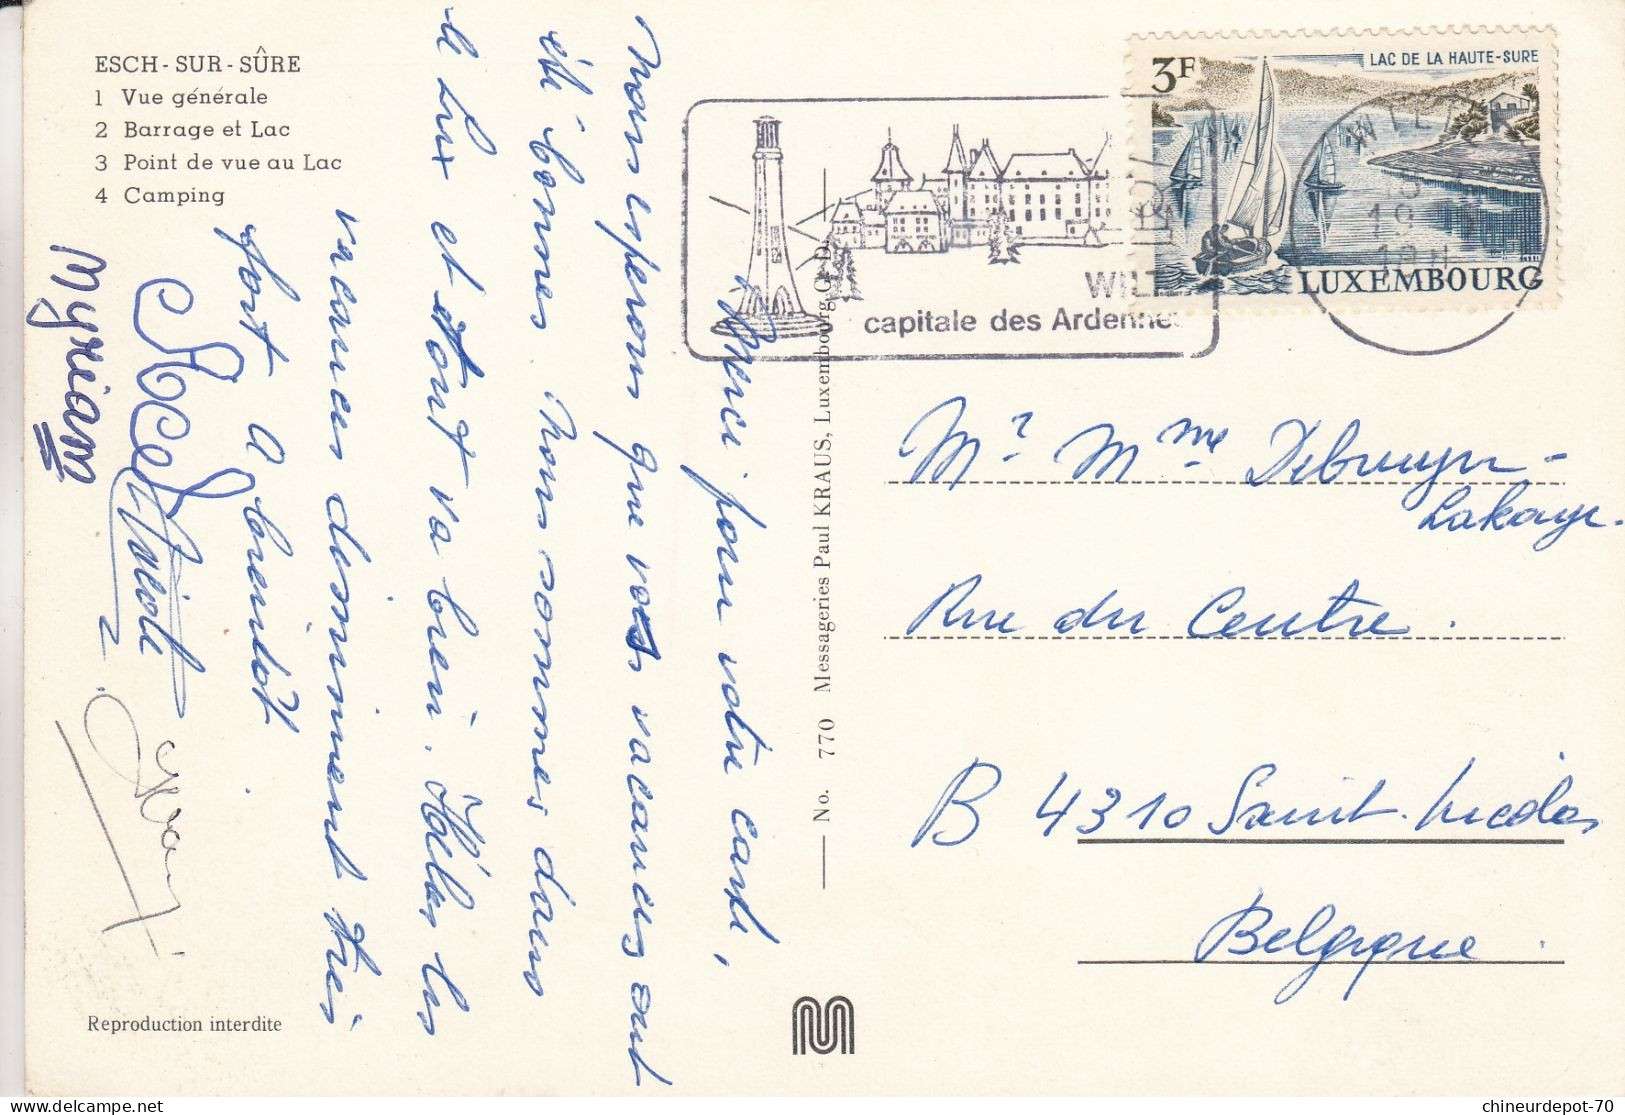 ESCH-SUR-SÛRE
1 Vue générale
2 Barrage et Lac
3 Point de vue au Lac
4 Camping
Merci pour votre carte,
nous espérons que vos vacances ont
été bonnes. Nous sommes dans
le Lux et tout va bien. Hélas les
vacances diminuent très
fort A bientôt
Nicole
Myriam
Reproduction interdite
No. 770 Messageries Paul KRAUS, Luxembourg, Gr.-D.
WILTZ
capitale des Ardennes
3F
LAC DE LA HAUTE-SURE
LUXEMBOURG
Mr Mme Debruyn-
Lakaye.
Rue du Centre.
B 4310 Saint-Nicolas
Belgique.
chineurdepot-70